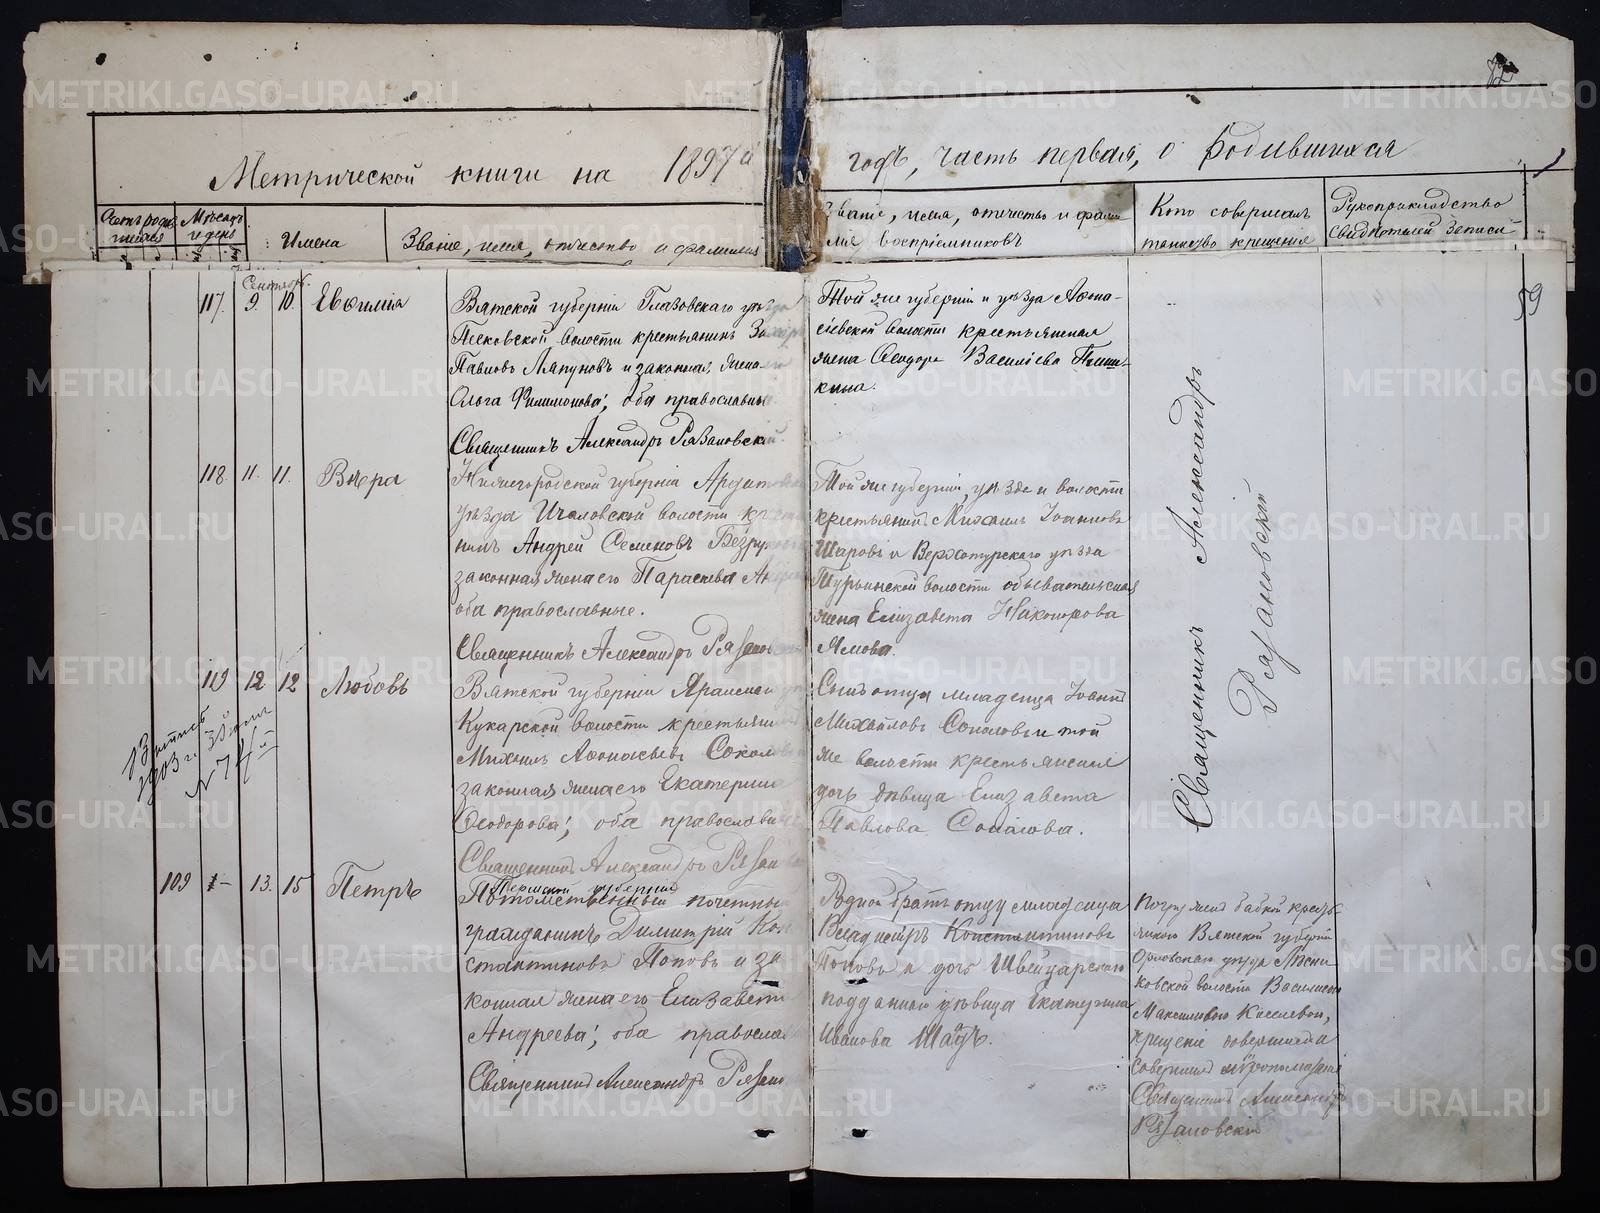 Метрической книги на 1897й
годъ, часть первая, о родившихся
Счетъ родившихся
Мѣсяцъ и день
Имена
Званіе, имя, отчество и фамилія
Званіе, имя, отчество и фами
лія воспріемниковъ
Кто совершалъ
таинство крещенія
Рукоприкладство
свидѣтелей записи
59
Сентябрь
117. 9. 10. Евѳимія
Вятской губерніи Глазовскаго уѣзда
крестьянинъ
Павловъ Ляпуновъ и законная жена
Ольга Филимонова; оба православные
Священникъ Александръ Рязановскій
Той же губерніи и уѣзда Аѳона-
сіевской волости крестьянская
жена Ѳеодора Василіева
кина.
118. 11. 11. Вѣра
Нижегородской губерніи Ардатов
уѣзда Ичаловской волости
нинъ Андрей Семеновъ
законная жена его Параскева
оба православные.
Священникъ Александръ Рязанов
Той же губерніи, уѣзда и волости
крестьянинъ Михаилъ Іоанновъ
Шаровъ и Верхотурскаго уѣзда
Турьинской волости обывательская
жена Елизавета Никонорова
Ямова.
119 12 12 Любовь
Вятской губерніи Яранскаго
Кукарской волости крестьянинъ
Михаилъ Аѳонасьевъ Соколов
законная жена его Екатерина
Ѳеодорова; оба православные
Священникъ Александръ Рязанов
Сынъ отца младенца Іоаннъ
Михайловъ Соколовъ и той
же волости крестьянская
дочь дѣвица Елизавета
Павлова Соколова.
1903 г.
109 1 13. 15 Петръ
Пермской губерніи
Потомственный почетный
гражданинъ Димитрій Кон
стантиновъ Поповъ и за
конная жена его Елизавета
Андреева; оба православ
Священникъ Александръ Рязанов
Родной братъ отцу младенца
Владиміръ Константиновъ
Поповъ и дочь Швейцарскаго
подданнаго дѣвица Екатерина
Иванова
Священникъ Александръ
Рязановскій
Погруженъ бабкой кресть
янкою Вятской губерніи
Орловскаго уѣзда
ковской волости
Максимовою
крещеніе
совершилъ
Священникъ Александръ
Рязановскій
METRIKI.GASO-URAL.RU